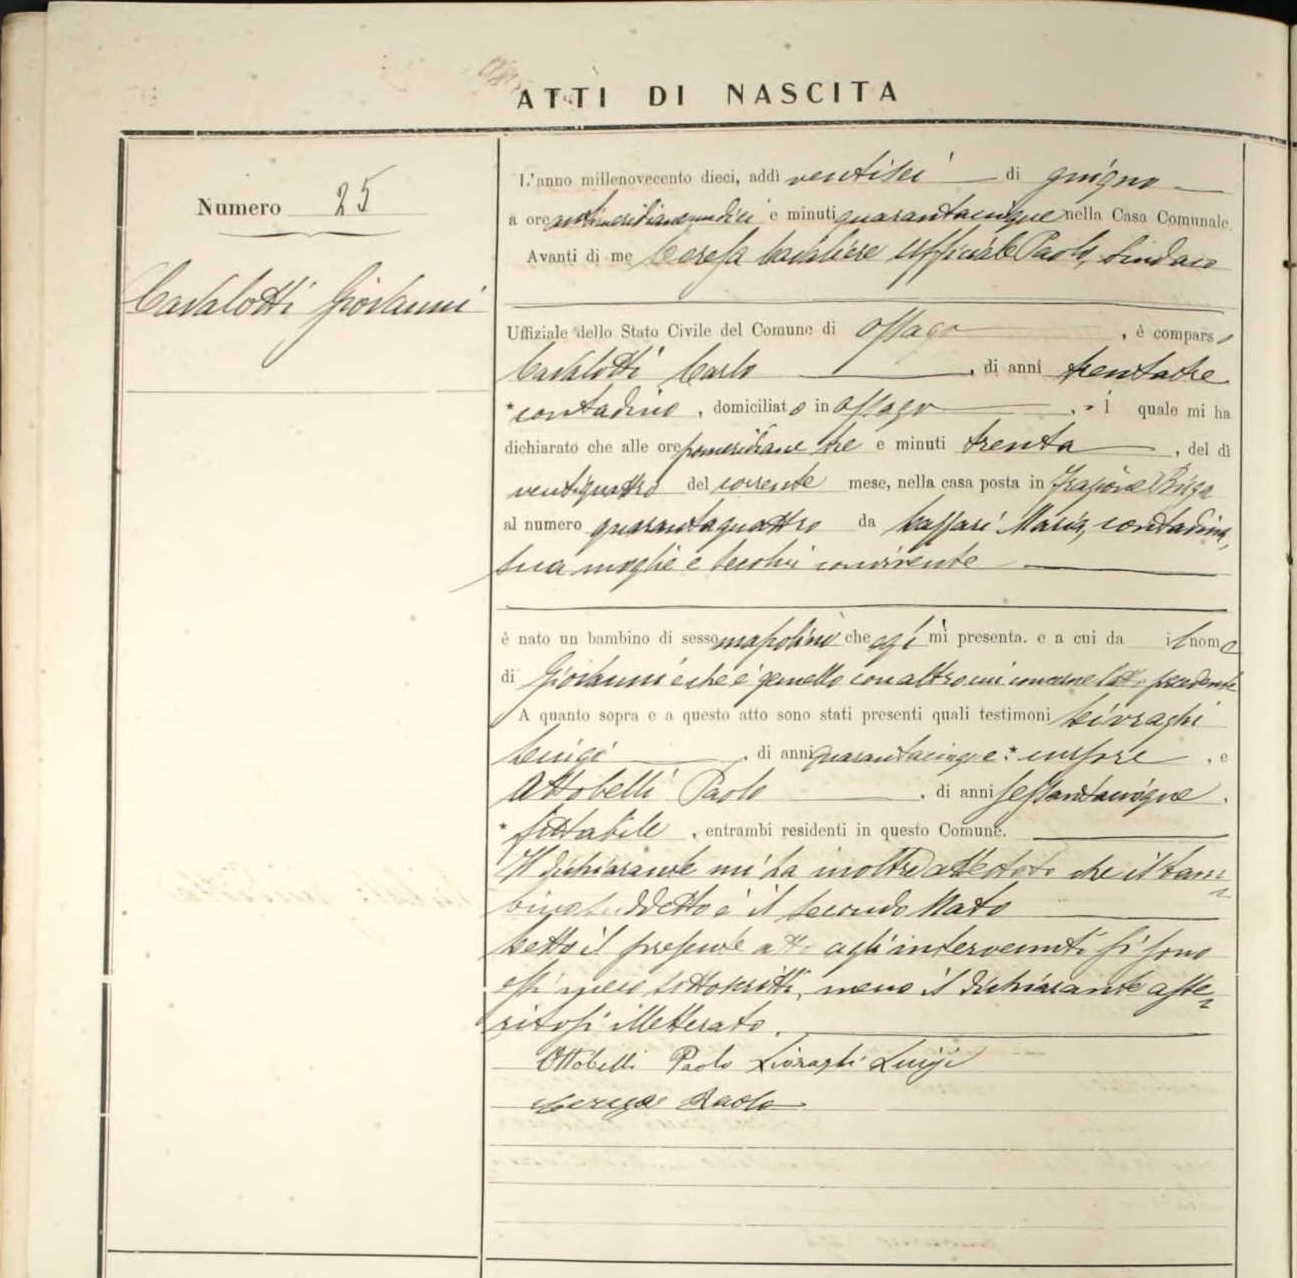 ATTI DI NASCITA
Numero 25
Cavalotti Giovanni
L'anno millenovecento dieci, addì ventisei di giugno
a ore antimeridiane undici e minuti quarantacinque nella Casa Comunale.
Avanti di me Ceresa Cavaliere Ufficiale Paolo, Sindaco
Uffiziale dello Stato Civile del Comune di Ossago, è comparso
Cavalotti Carlo, di anni trentatre
* contadino, domiciliato in Ossago, il quale mi ha
dichiarato che alle ore pomeridiane tre e minuti trenta, del dì
ventiquattro del corrente mese, nella casa posta in Frazione
al numero quarantaquattro da Maria, contadina,
sua moglie e secolui convivente
è nato un bambino di sesso mascolino che egli mi presenta, e a cui da il nome
di Giovanni e che è gemello con altro cui concerne l'atto precedente
A quanto sopra e a questo atto sono stati presenti quali testimoni Livraghi
Luigi, di anni quarantacinque * cursore, e
Ottobelli Paolo, di anni sessantacinque,
* fittabile, entrambi residenti in questo Comune.
Il dichiarante mi ha inoltre attestato che il bam=
bino suddetto è il secondo Nato
Letto il presente atto agli intervenuti si sono
essi meco sottoscritti, meno il dichiarante asse=
ritosi illetterato.
Ottobelli Paolo Livraghi Luigi
Ceresa Paolo